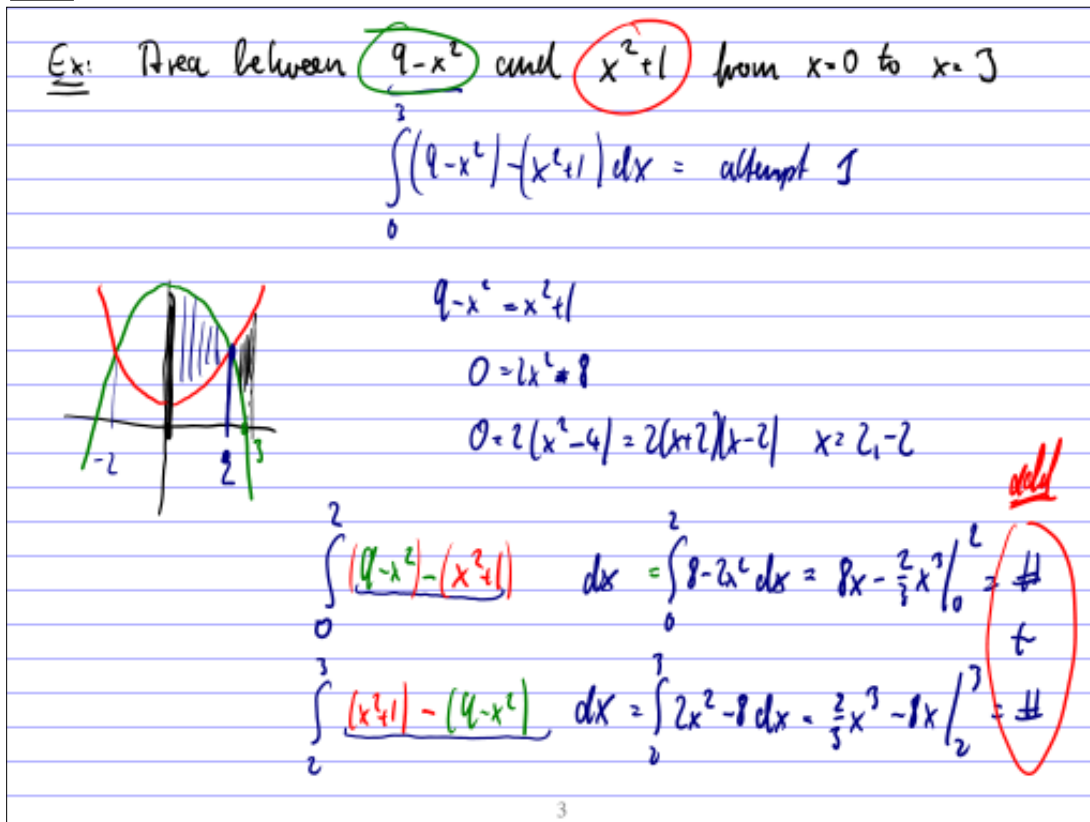 Ex: Area between 9-x² and x²+1 from x=0 to x=3
∫₀³ (9-x²)-(x²+1) dx = attempt 1
9-x² = x²+1
0=2x²-8
0=2(x²-4)=2(x+2)(x-2) x=2,-2
-2 2 3
add
∫₀² (9-x²)-(x²+1) dx = ∫₀² 8-2x² dx = 8x-⅔x³|₀² = #
+
∫₂³ (x²+1)-(9-x²) dx = ∫₂³ 2x²-8 dx = ⅔x³-8x|₂³ = #
3